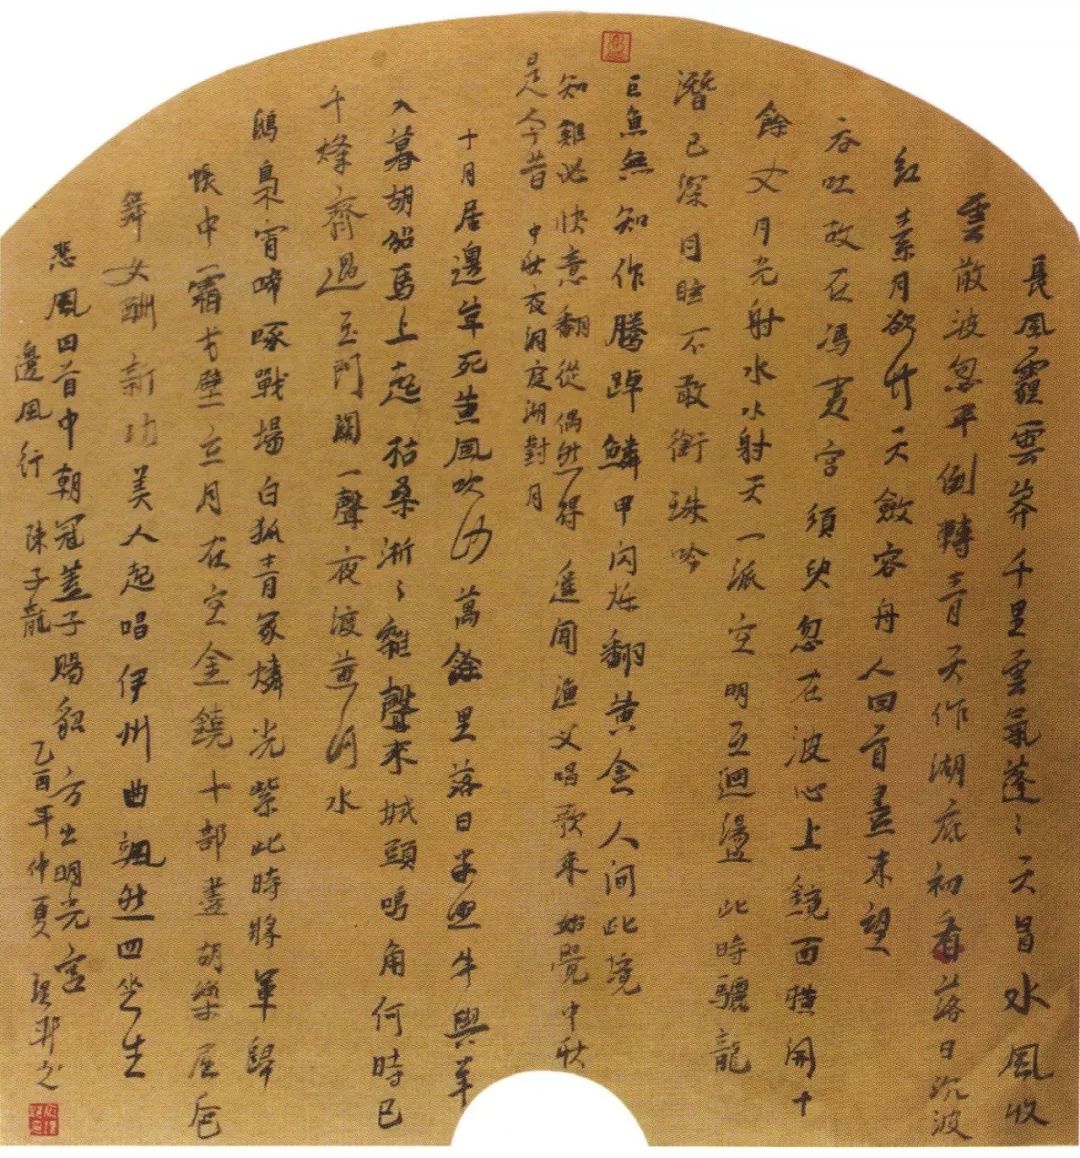 長風霾雲莽千里雲氣蓬〻天冒水風收
雲散波忽平倒轉青天作湖底初看落日沉波
紅素月欲升天斂容舟人回首盡東望
吞吐故在馮夷宮須臾忽在波心上鏡面橫開十
餘丈月光射水水射天一派空明互迴盪此時驪龍
潛已深目眩不敢銜珠吟
巨魚無知作騰踔鱗甲閃爍翻黃金人間此境
知難此快意翻從偶然得遙聞漁父唱歌來始覺中秋
是今昔 中秋夜洞庭湖對月
十月居邊草死黃風吹沙萬餘里落日光照牛與羊
入暮胡笳馬上起枯桑淅〻雜聲來城頭鳴角何時已
千烽齊過玉門關一聲夜渡黃河水
鴟梟宵啼啄戰場白狐青冢燐光紫此時將軍歸
帳中霜芳壁立月在空金鐃十部盡胡樂屈卮
舞女酬新功美人起唱伊州曲颯然四坐生
悲風回首中朝冠蓋子賜貂方出明光宮
邊風行 陳子龍 乙酉年仲夏